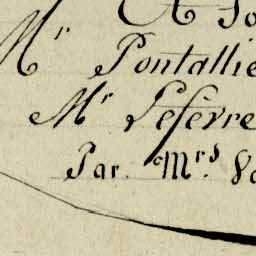 A So
Mr Pontallie
Mr Lefevre
Par Mrs Va